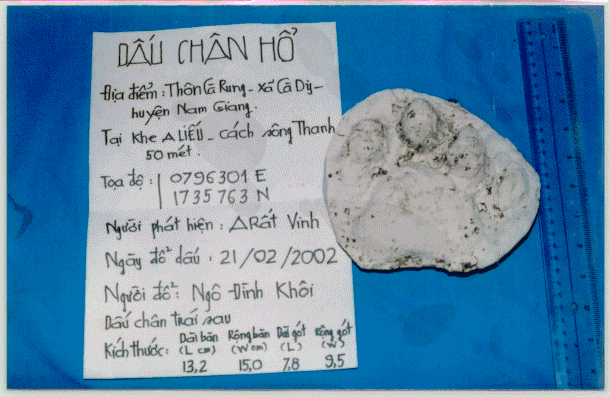 DẤU CHÂN HỔ
Địa điểm: Thôn Cà Rung - Xã Cà Dy -
huyện Nam Giang.
Tại Khe A LIÊU - Cách sông Thanh
50 mét.
Tọa độ: 0796301 E
1735763 N
Người phát hiện: ARất Vinh
Ngày đổ dấu: 21/02/2002
Người đổ: Ngô Đình Khôi
Dấu chân trái sau
Kích thước: Dài bàn (L cm) Rộng bàn (W cm) Dài gót (L) Rộng gót (W)
13,2 15,0 7,8 9,5